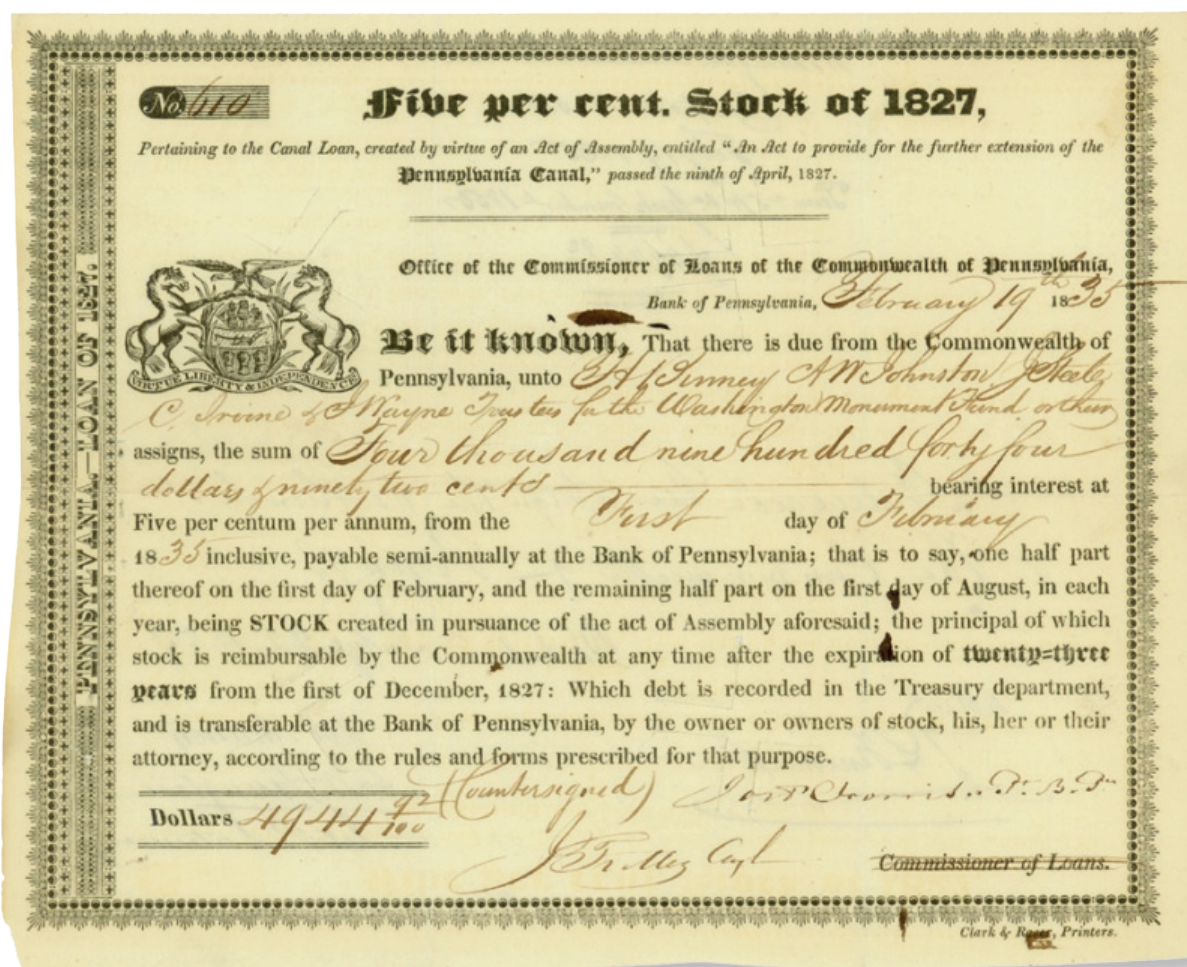 No. 610
Five per cent. Stock of 1827,
Pertaining to the Canal Loan, created by virtue of an Act of Assembly, entitled "An Act to provide for the further extension of the
Pennsylvania Canal," passed the ninth of April, 1827.
Office of the Commissioner of Loans of the Commonwealth of Pennsylvania,
Bank of Pennsylvania, February 19th 1835
VIRTUE LIBERTY & INDEPENDENCE
Be it known, That there is due from the Commonwealth of
Pennsylvania, unto A W Johnston J Steele
C. Irvine & I Wayne Trustees for the Washington Monument Fund or their
assigns, the sum of Four thousand nine hundred forty four
dollars & ninety two cents bearing interest at
Five per centum per annum, from the First day of February
1835 inclusive, payable semi-annually at the Bank of Pennsylvania; that is to say, one half part
thereof on the first day of February, and the remaining half part on the first day of August, in each
year, being STOCK created in pursuance of the act of Assembly aforesaid; the principal of which
stock is reimbursable by the Commonwealth at any time after the expiration of twenty-three
years from the first of December, 1827: Which debt is recorded in the Treasury department,
and is transferable at the Bank of Pennsylvania, by the owner or owners of stock, his, her or their
attorney, according to the rules and forms prescribed for that purpose.
Dollars 4944 92/100
(Countersigned)
Commissioner of Loans.
Clark & Printers.
PENNSYLVANIA—LOAN OF 1827.